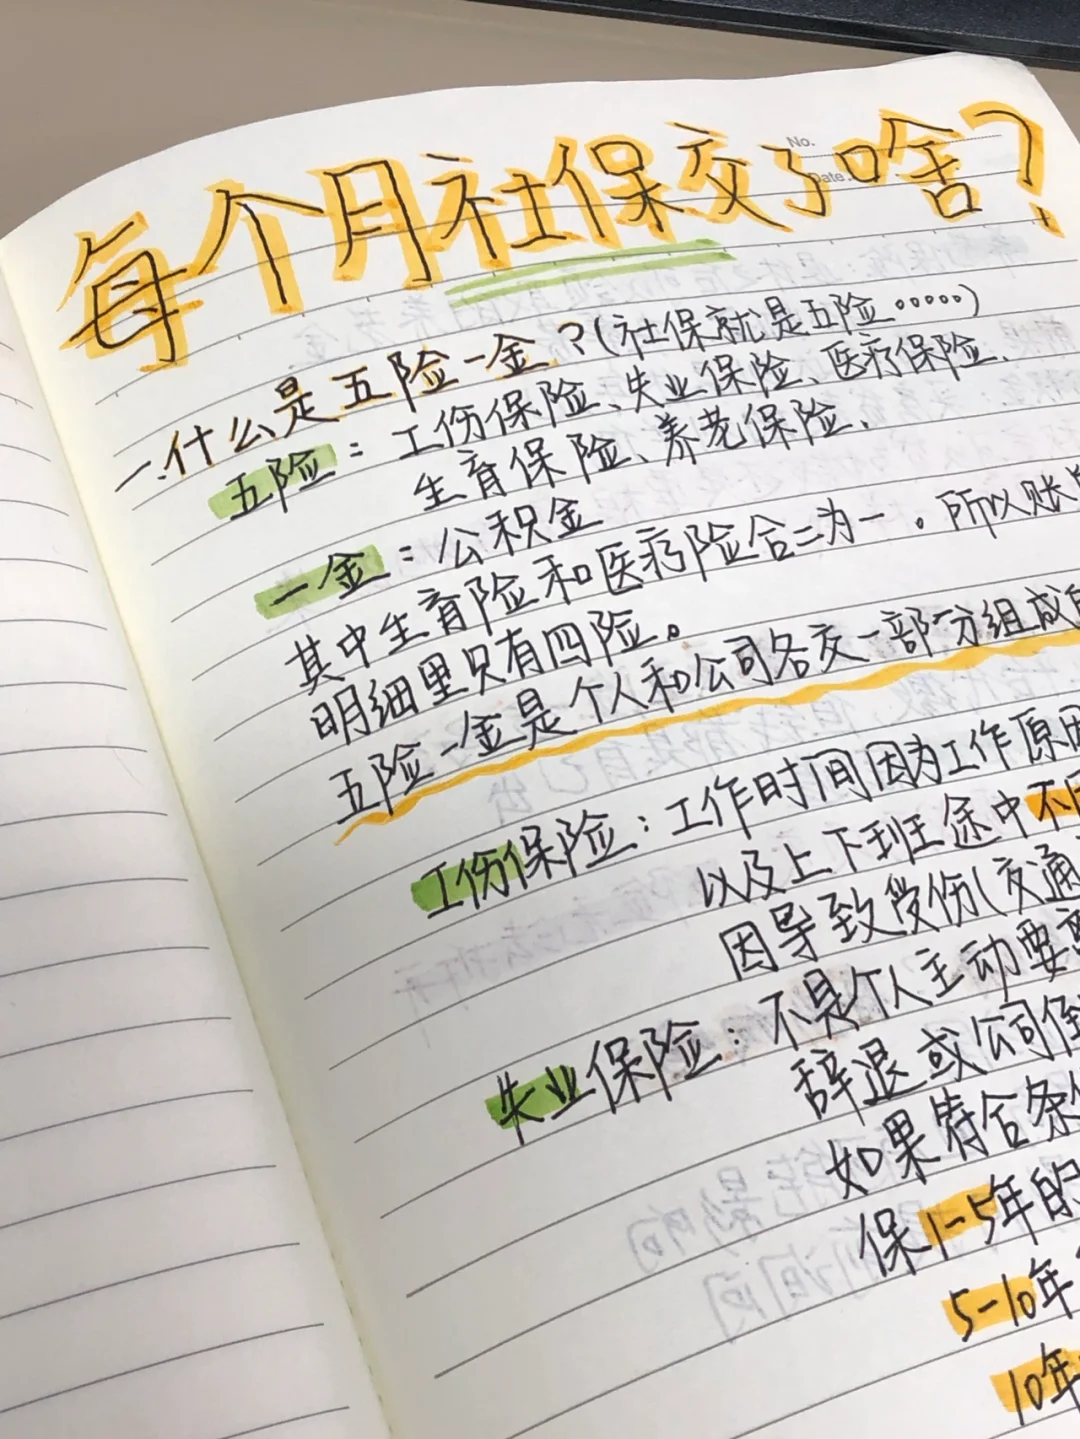 No.
Date.
每个月社保交了啥？
一.什么是五险一金？(社保就是五险……)
五险：工伤保险、失业保险、医疗保险、
生育保险、养老保险、
一金：公积金
其中生育险和医疗险合二为一。所以账
明细里只有四险。
五险一金是个人和公司各交一部分组成
工伤保险：工作时间因为工作原因
以及上下班途中不
因导致受伤(交通
失业保险：不是个人主动要
辞退或公司倒
如果符合条
保1-5年的
5-10年
10年